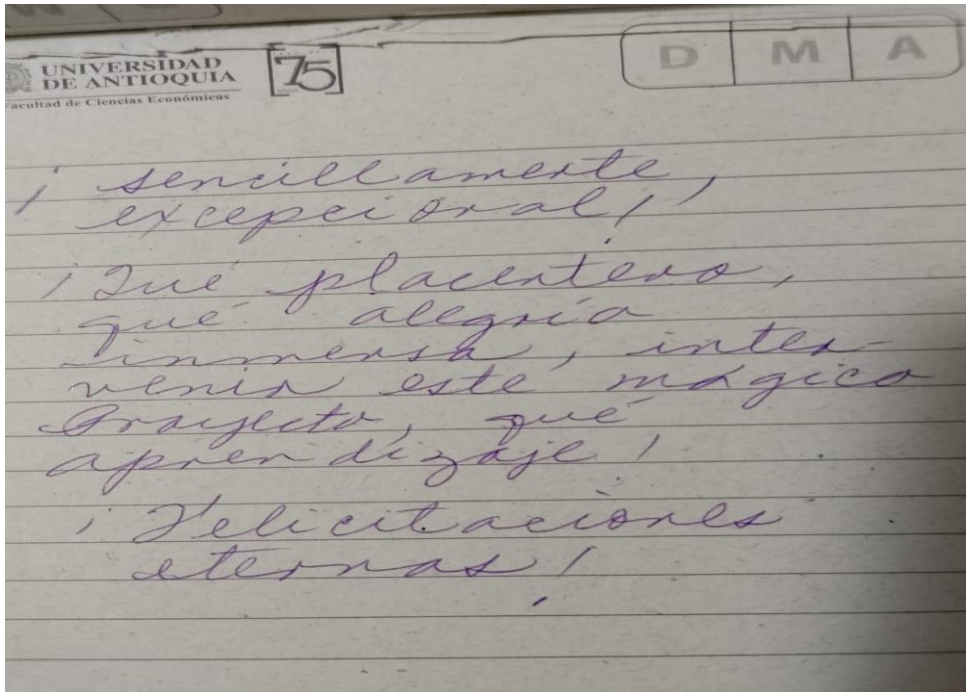 UNIVERSIDAD
DE ANTIOQUIA
Facultad de Ciencias Económicas
75
D M A
¡ sencillamente,
excepcional!
¡Qué placentero,
qué alegría
inmensa, inter-
venir este mágico
Proyecto, qué
aprendizaje!
¡Felicitaciones
eternas!